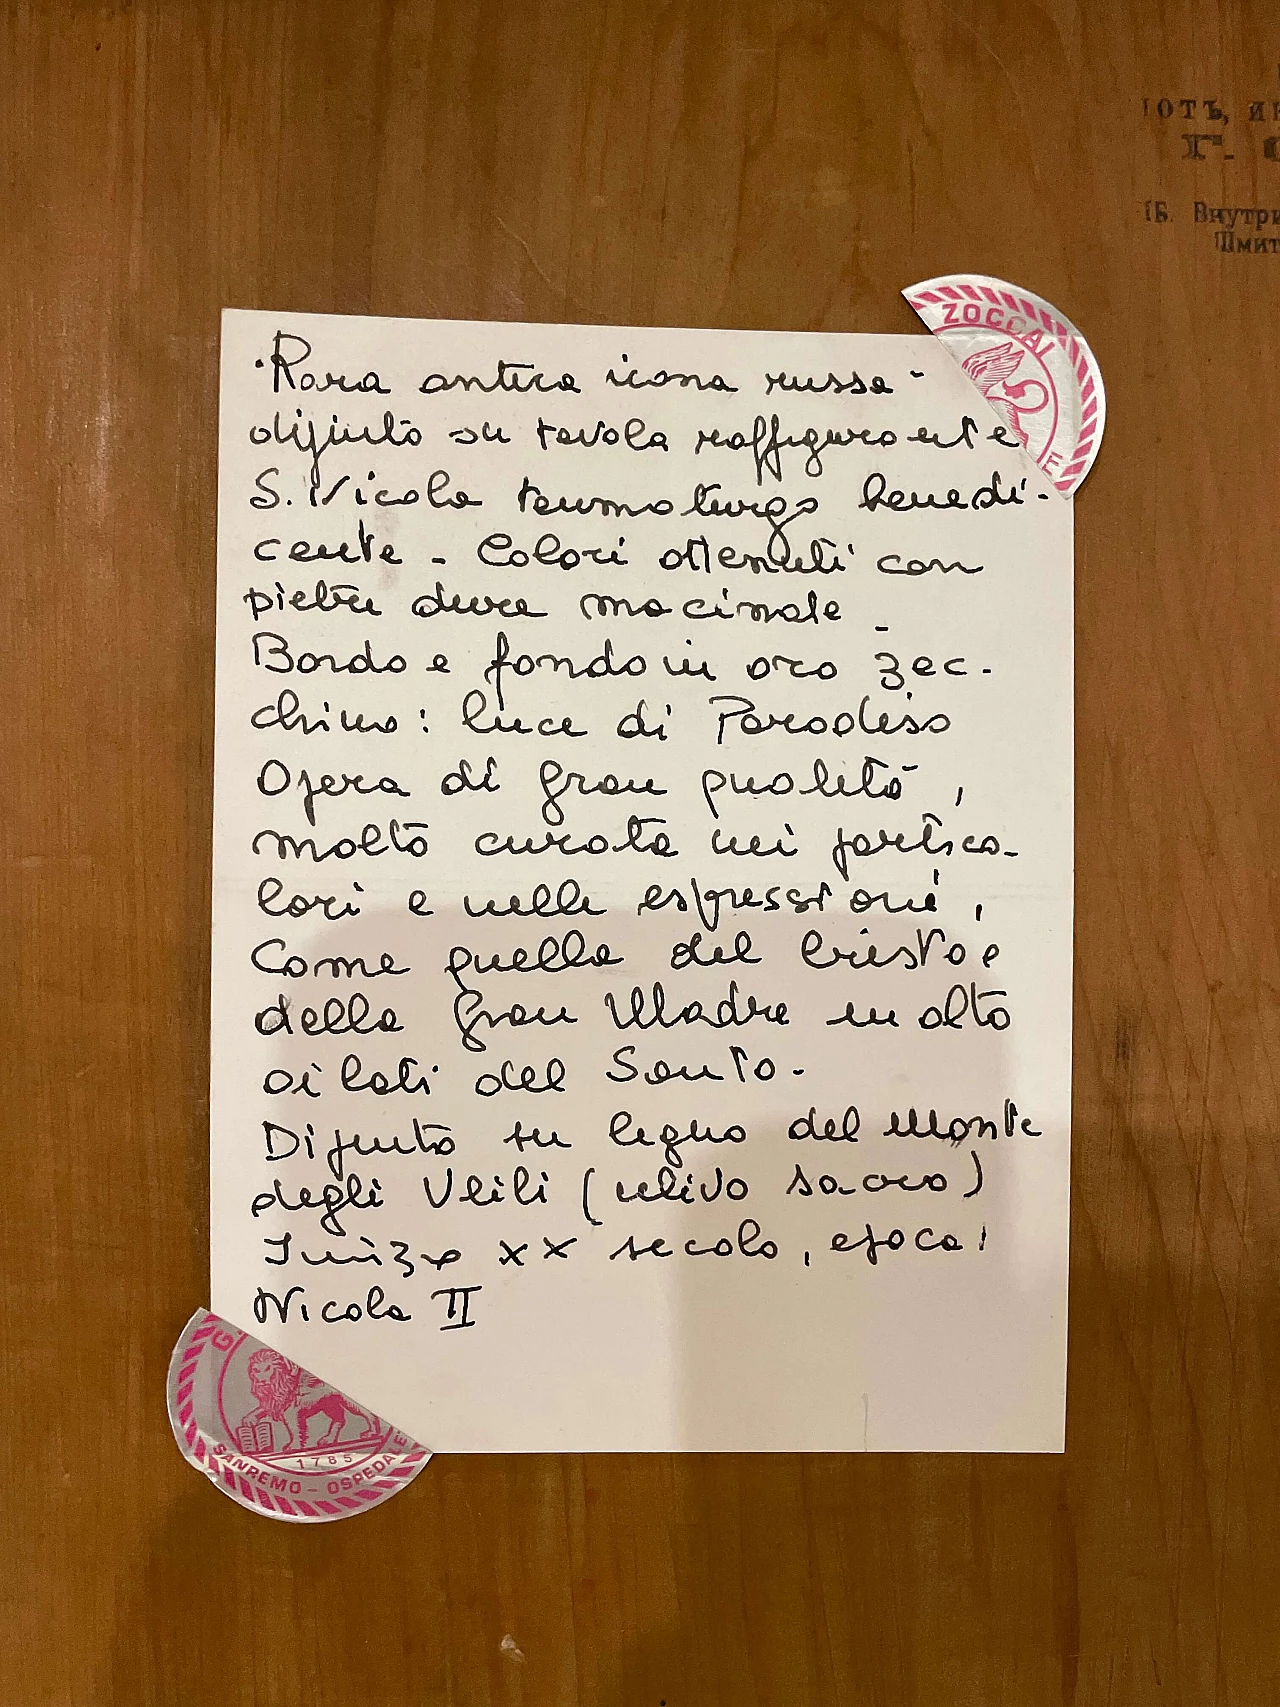 ІОТЪ, И
Г.
Б. Внутри
Дмит
ZOCCAI
E
"Rara antica icona russa"
dipinto su tavola raffigurante
S. Nicola taumaturgo benedi-
cente - Colori ottenuti con
pietre dure macinate -
Bordo e fondo in oro zec-
chino: luce di Paradiso
Opera di gran qualità,
molto curata nei partico-
lari e nelle espressioni,
Come quella del Cristo e
della Gran Madre in alto
ai lati del Santo.
Dipinto su legno del Monte
degli Ulivi (ulivo sacro)
Inizio XX secolo, epoca:
Nicola II
G.
1785
SANREMO - OSPEDALE